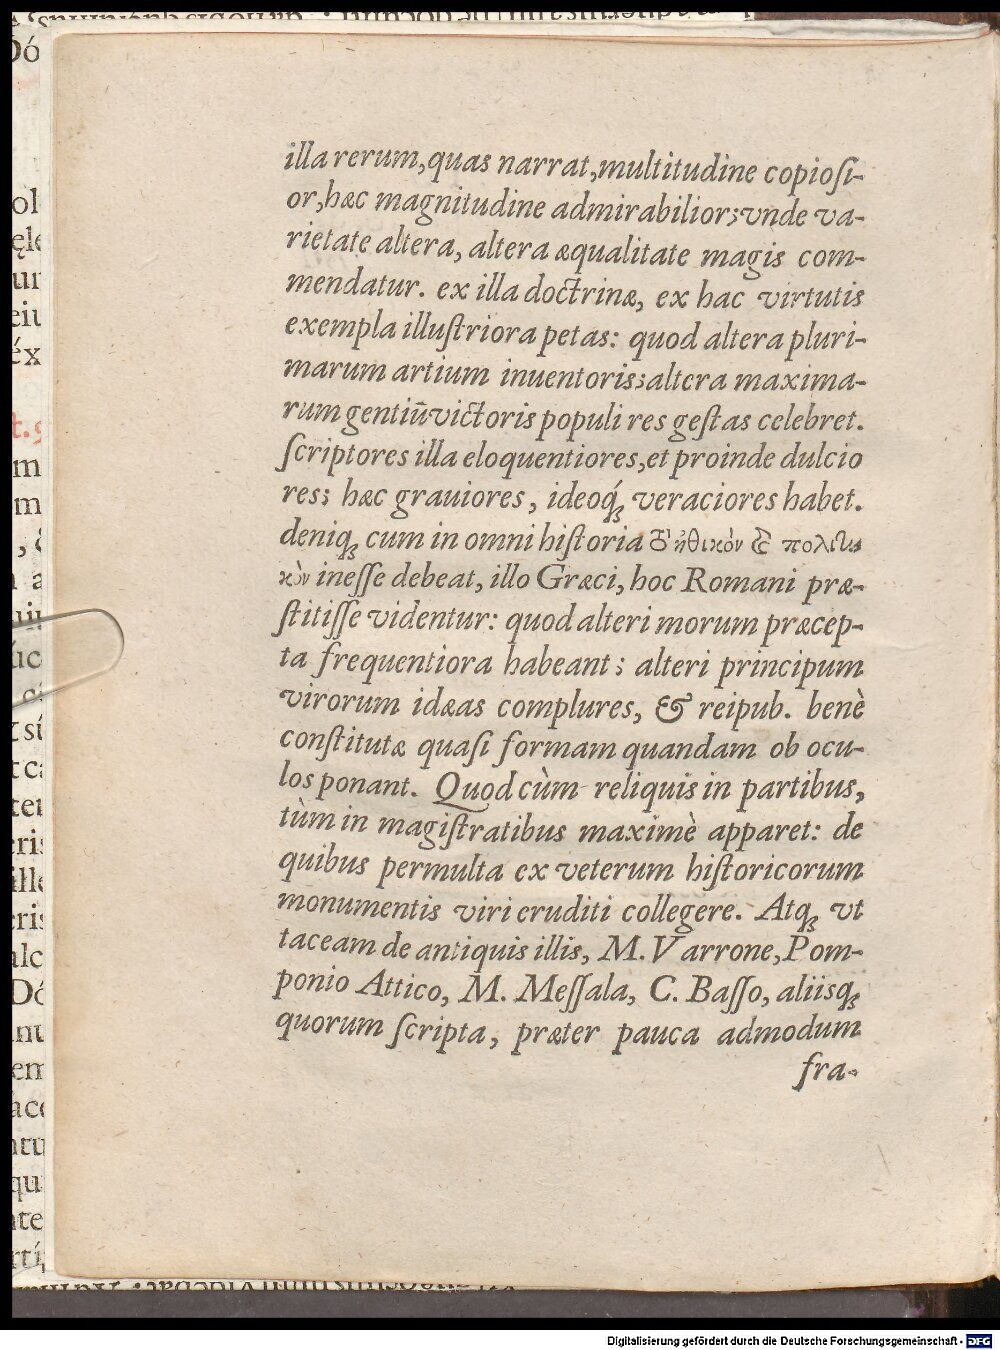 illa rerum, quas narrat, multitudine copiosi-
or, hæc magnitudine admirabilior; vnde va-
rietate altera, altera æqualitate magis com-
mendatur. ex illa doctrinæ, ex hac virtutis
exempla illustriora petas: quod altera pluri-
marum artium inuentoris; altera maxima-
rum gentiũ victoris populi res gestas celebret.
scriptores illa eloquentiores, et proinde dulcio
res; hæc grauiores, ideoq́; veraciores habet.
deniq; cum in omni historia τὸ ἠθικὸν καὶ πολιτι
κὸν inesse debeat, illo Græci, hoc Romani præ-
stitisse videntur: quod alteri morum præcep-
ta frequentiora habeant; alteri principum
virorum idæas complures, & reipub. benè
constitutæ quasi formam quandam ob ocu-
los ponant. Quod cùm reliquis in partibus,
tùm in magistratibus maximè apparet: de
quibus permulta ex veterum historicorum
monumentis viri eruditi collegere. Atq; vt
taceam de antiquis illis, M. Varrone, Pom-
ponio Attico, M. Messala, C. Basso, aliisq;
quorum scripta, præter pauca admodum
fra-
Digitalisierung gefördert durch die Deutsche Forschungsgemeinschaft - DFG